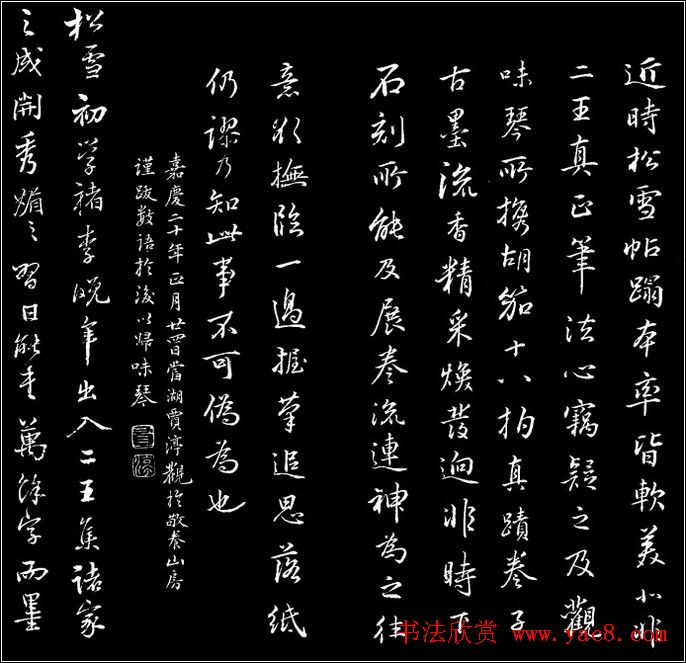 近時松雪帖蹋本率皆軟美非
二王真正筆法心竊疑之及觀
味琴所攜胡笳十八拍真蹟卷子
古墨流香精采煥發迥非時下
石刻所能及展卷流連神為之往
意欲撫臨一過握筆追思落紙
仍謬乃知此事不可偽為也
嘉慶二十年正月廿四日當湖賈淳觀於敬養山房
謹跋數語於後以歸味琴
松雪初學褚李晚年出入二王集諸家
之成開秀媚之習日能書萬餘字而墨
书法欣赏 www.yac8.com